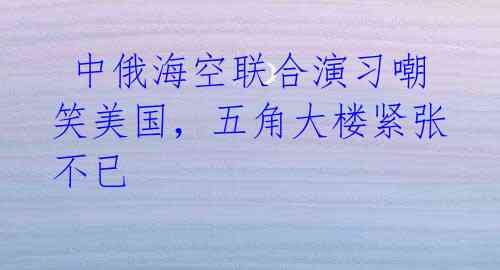 中俄海空联合演习嘲
笑美国，五角大楼紧张
不已